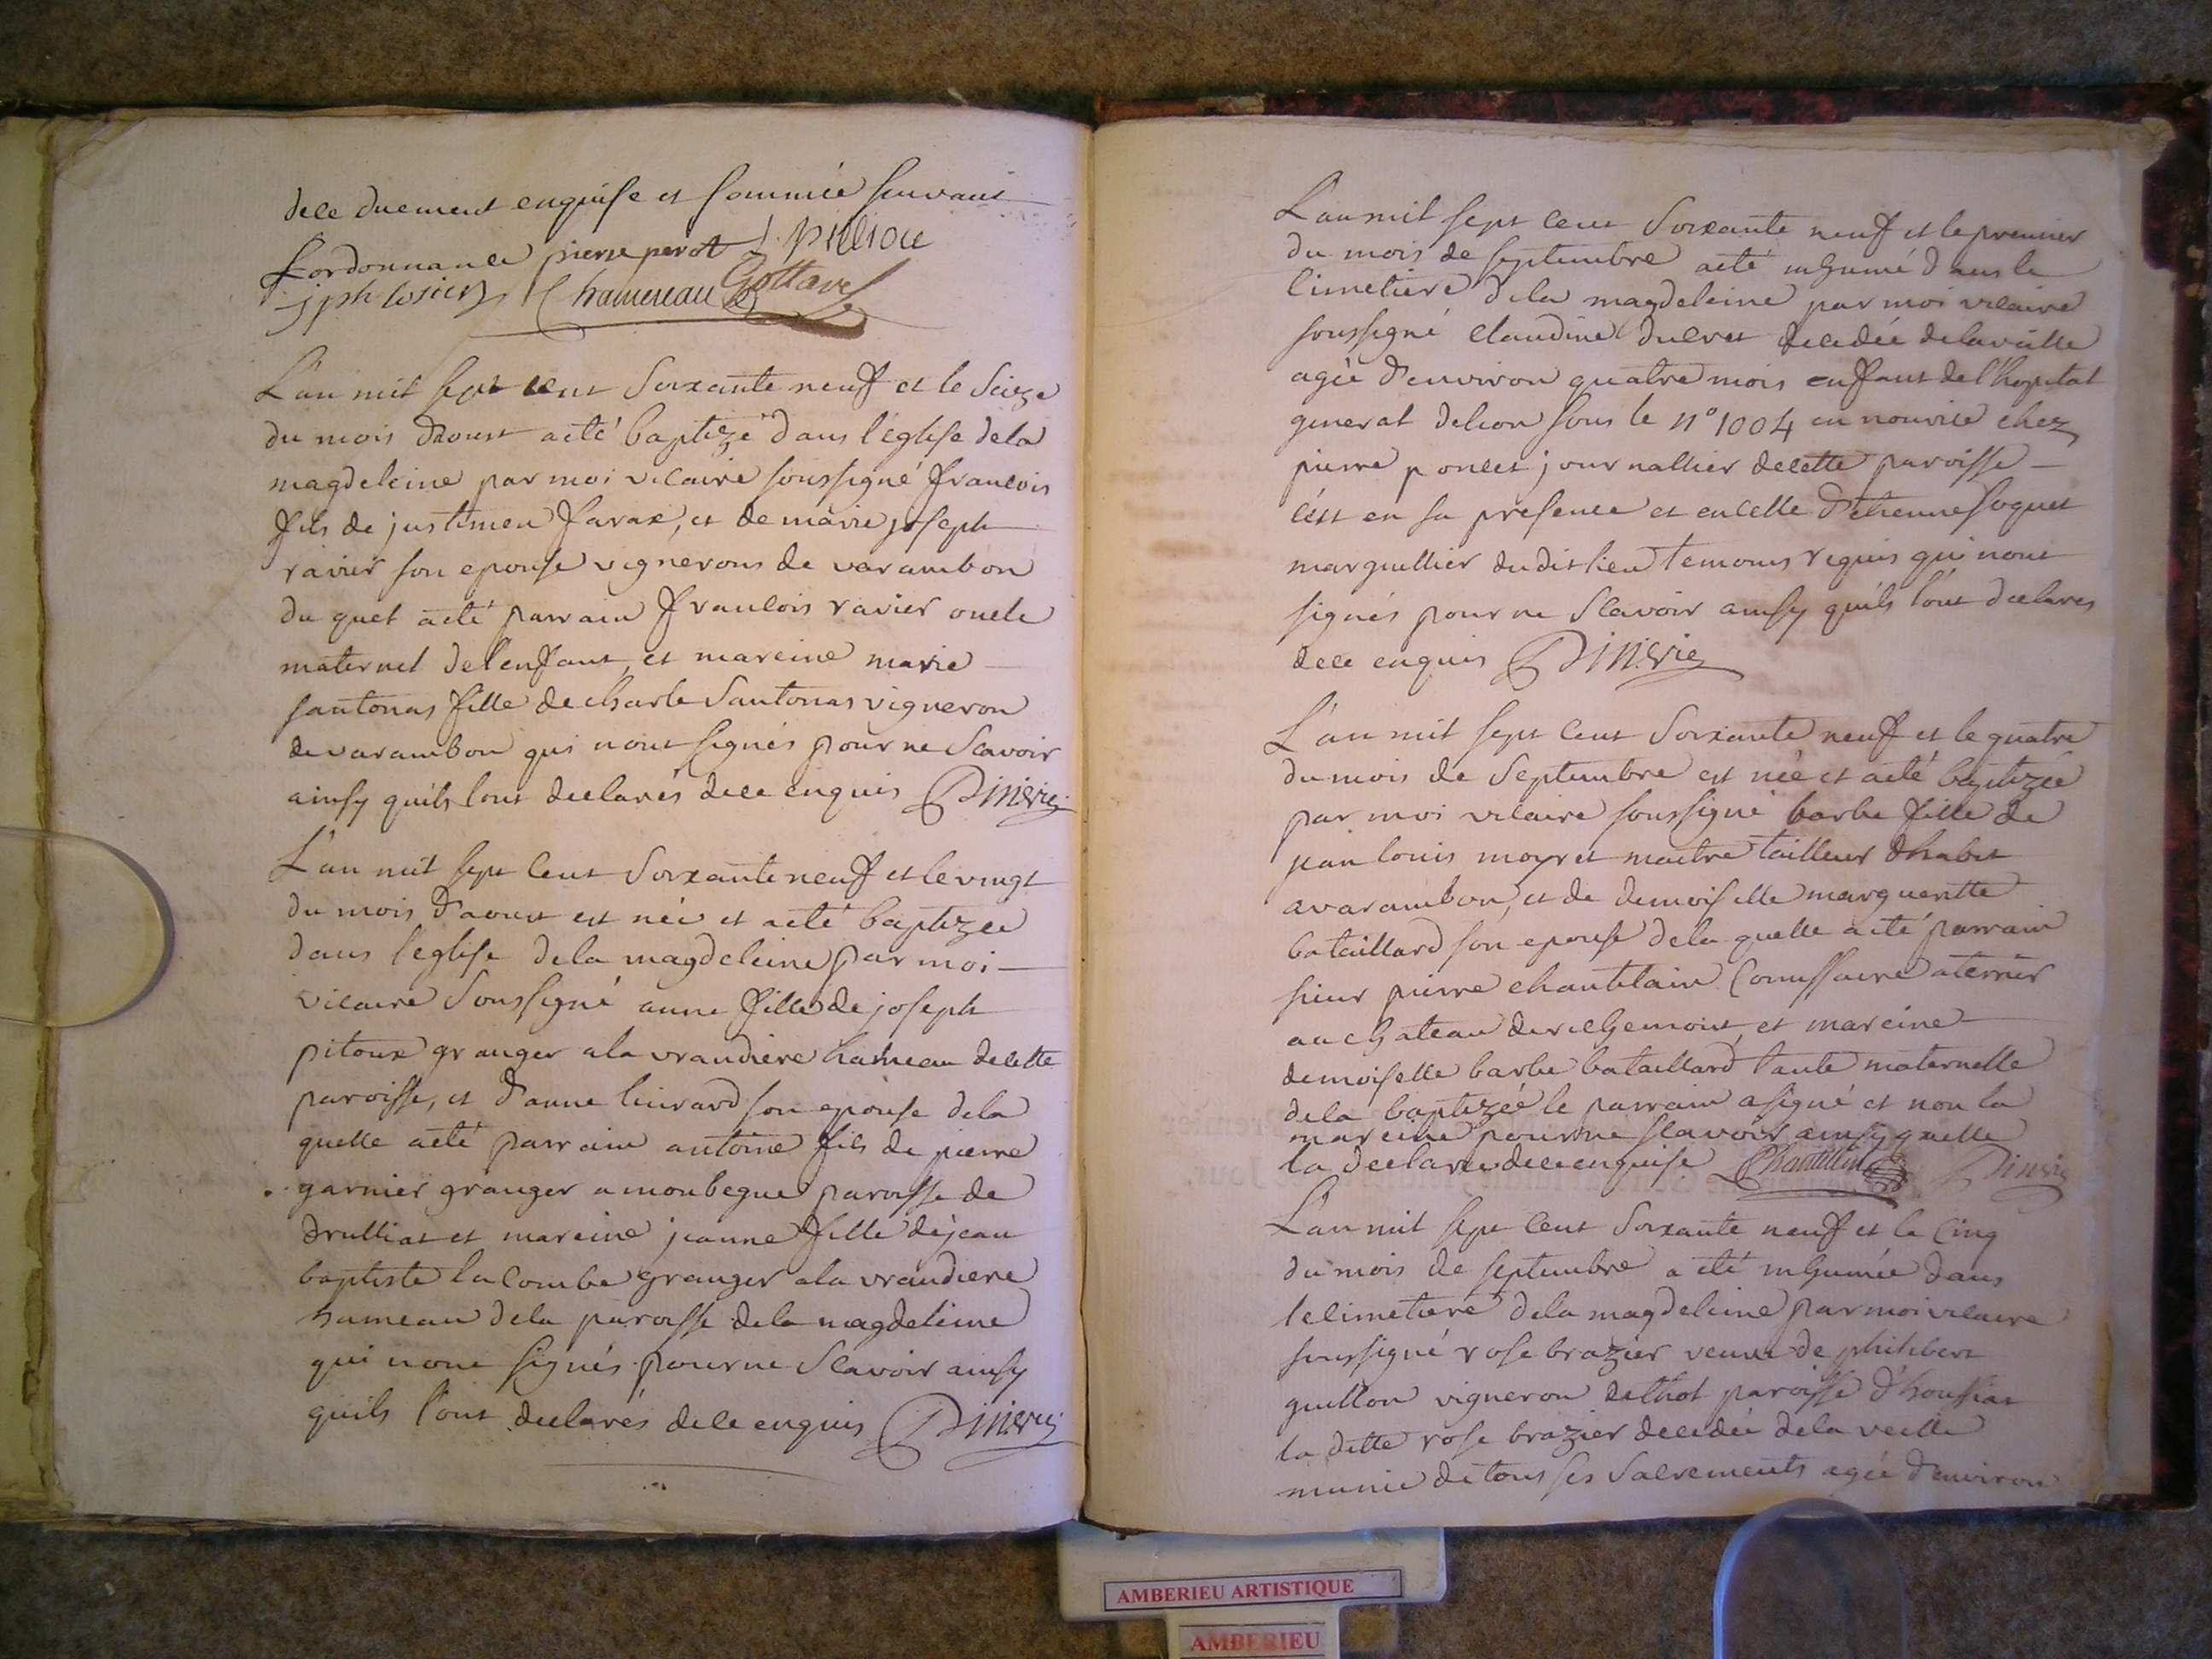 dece duement enquise et sommée suivant
l'ordonnance pierre perot J. pilliou
jph losier Chameneau Gottave
L'an mil sept cent Soixante neuf et le Seize
du mois d'aoust a eté baptizé dans l'église dela
magdeleine par moi vicaire soussigné francois
fils de justinien favax, et de marie joseph
ravier son epouse vignerons de varambon
du quel a eté parrain francois ravier oncle
maternel del'enfant, et mareine marie
santonas fille de charle Santonas vigneron
de varambon qui n'ont signés pour ne Scavoir
ainsy quils l'ont declarés dece enquis
L'an mil sept cent Soixante neuf et le vingt
du mois d'aoust est née et a eté baptizee
dans l'eglise dela magdeleine par moi
vicaire Soussigné anne fille de joseph
pitoux granger ala vrandiere hameau decette
paroisse, et d'anne lienrard son epouse dela
quelle a eté parrain antoine fils de pierre
garnier granger a monbegue paroisse de
druilliat et mareine jeanne fille de jean
baptiste la combe granger ala vrandiere
hameau dela paroisse dela magdeleine
qui n'ont signés pour ne Scavoir ainsy
quils l'ont declarés dece enquis
L'an mil sept cent Soixante neuf et le premier
du mois de septembre a eté inhumé dans le
cimetiere dela magdeleine par moi vicaire
soussigné claudine ducret decedée delaveille
agée d'environ quatre mois enffant de l'hopital
general delion sous le n° 1004 en nourice chez
pierre poncet journallier decette paroisse
c'est en sa presence et encelle d'etienne foquet
marguillier dudit lieu temoins requis qui n'ont
signés pour ne Scavoir ainsy quils l'ont declarés
dece enquis
L'an mil sept cent Soixante neuf et le quatre
du mois de Septembre est née et a eté baptizée
par moi vicaire soussigné barbe fille de
jean louis moyret maitre tailleur d'habit
a varambon, et de demoiselle margueritte
bataillard son epouse dela quelle a eté parrain
sieur pierre chantelain Comissaire a terrier
au chateau de richemont, et mareine
demoiselle barbe bataillard tante maternelle
dela baptizée le parrain a signé et non la
mareine pour ne scavoir ainsy quelle
la declaré dece enquise
L'an mil sept cent Soixante neuf et le Cinq
du mois de septembre a eté inhumée dans
le cimetiere dela magdeleine par moi vicaire
soussigné rose brazier veuve de philibert
guillon vigneron dethol paroisse d'houssiat
la ditte rose brazier decedée dela veille
munie de tous ses Sacrements agée d'environ
AMBERIEU ARTISTIQUE
AMBERIEU